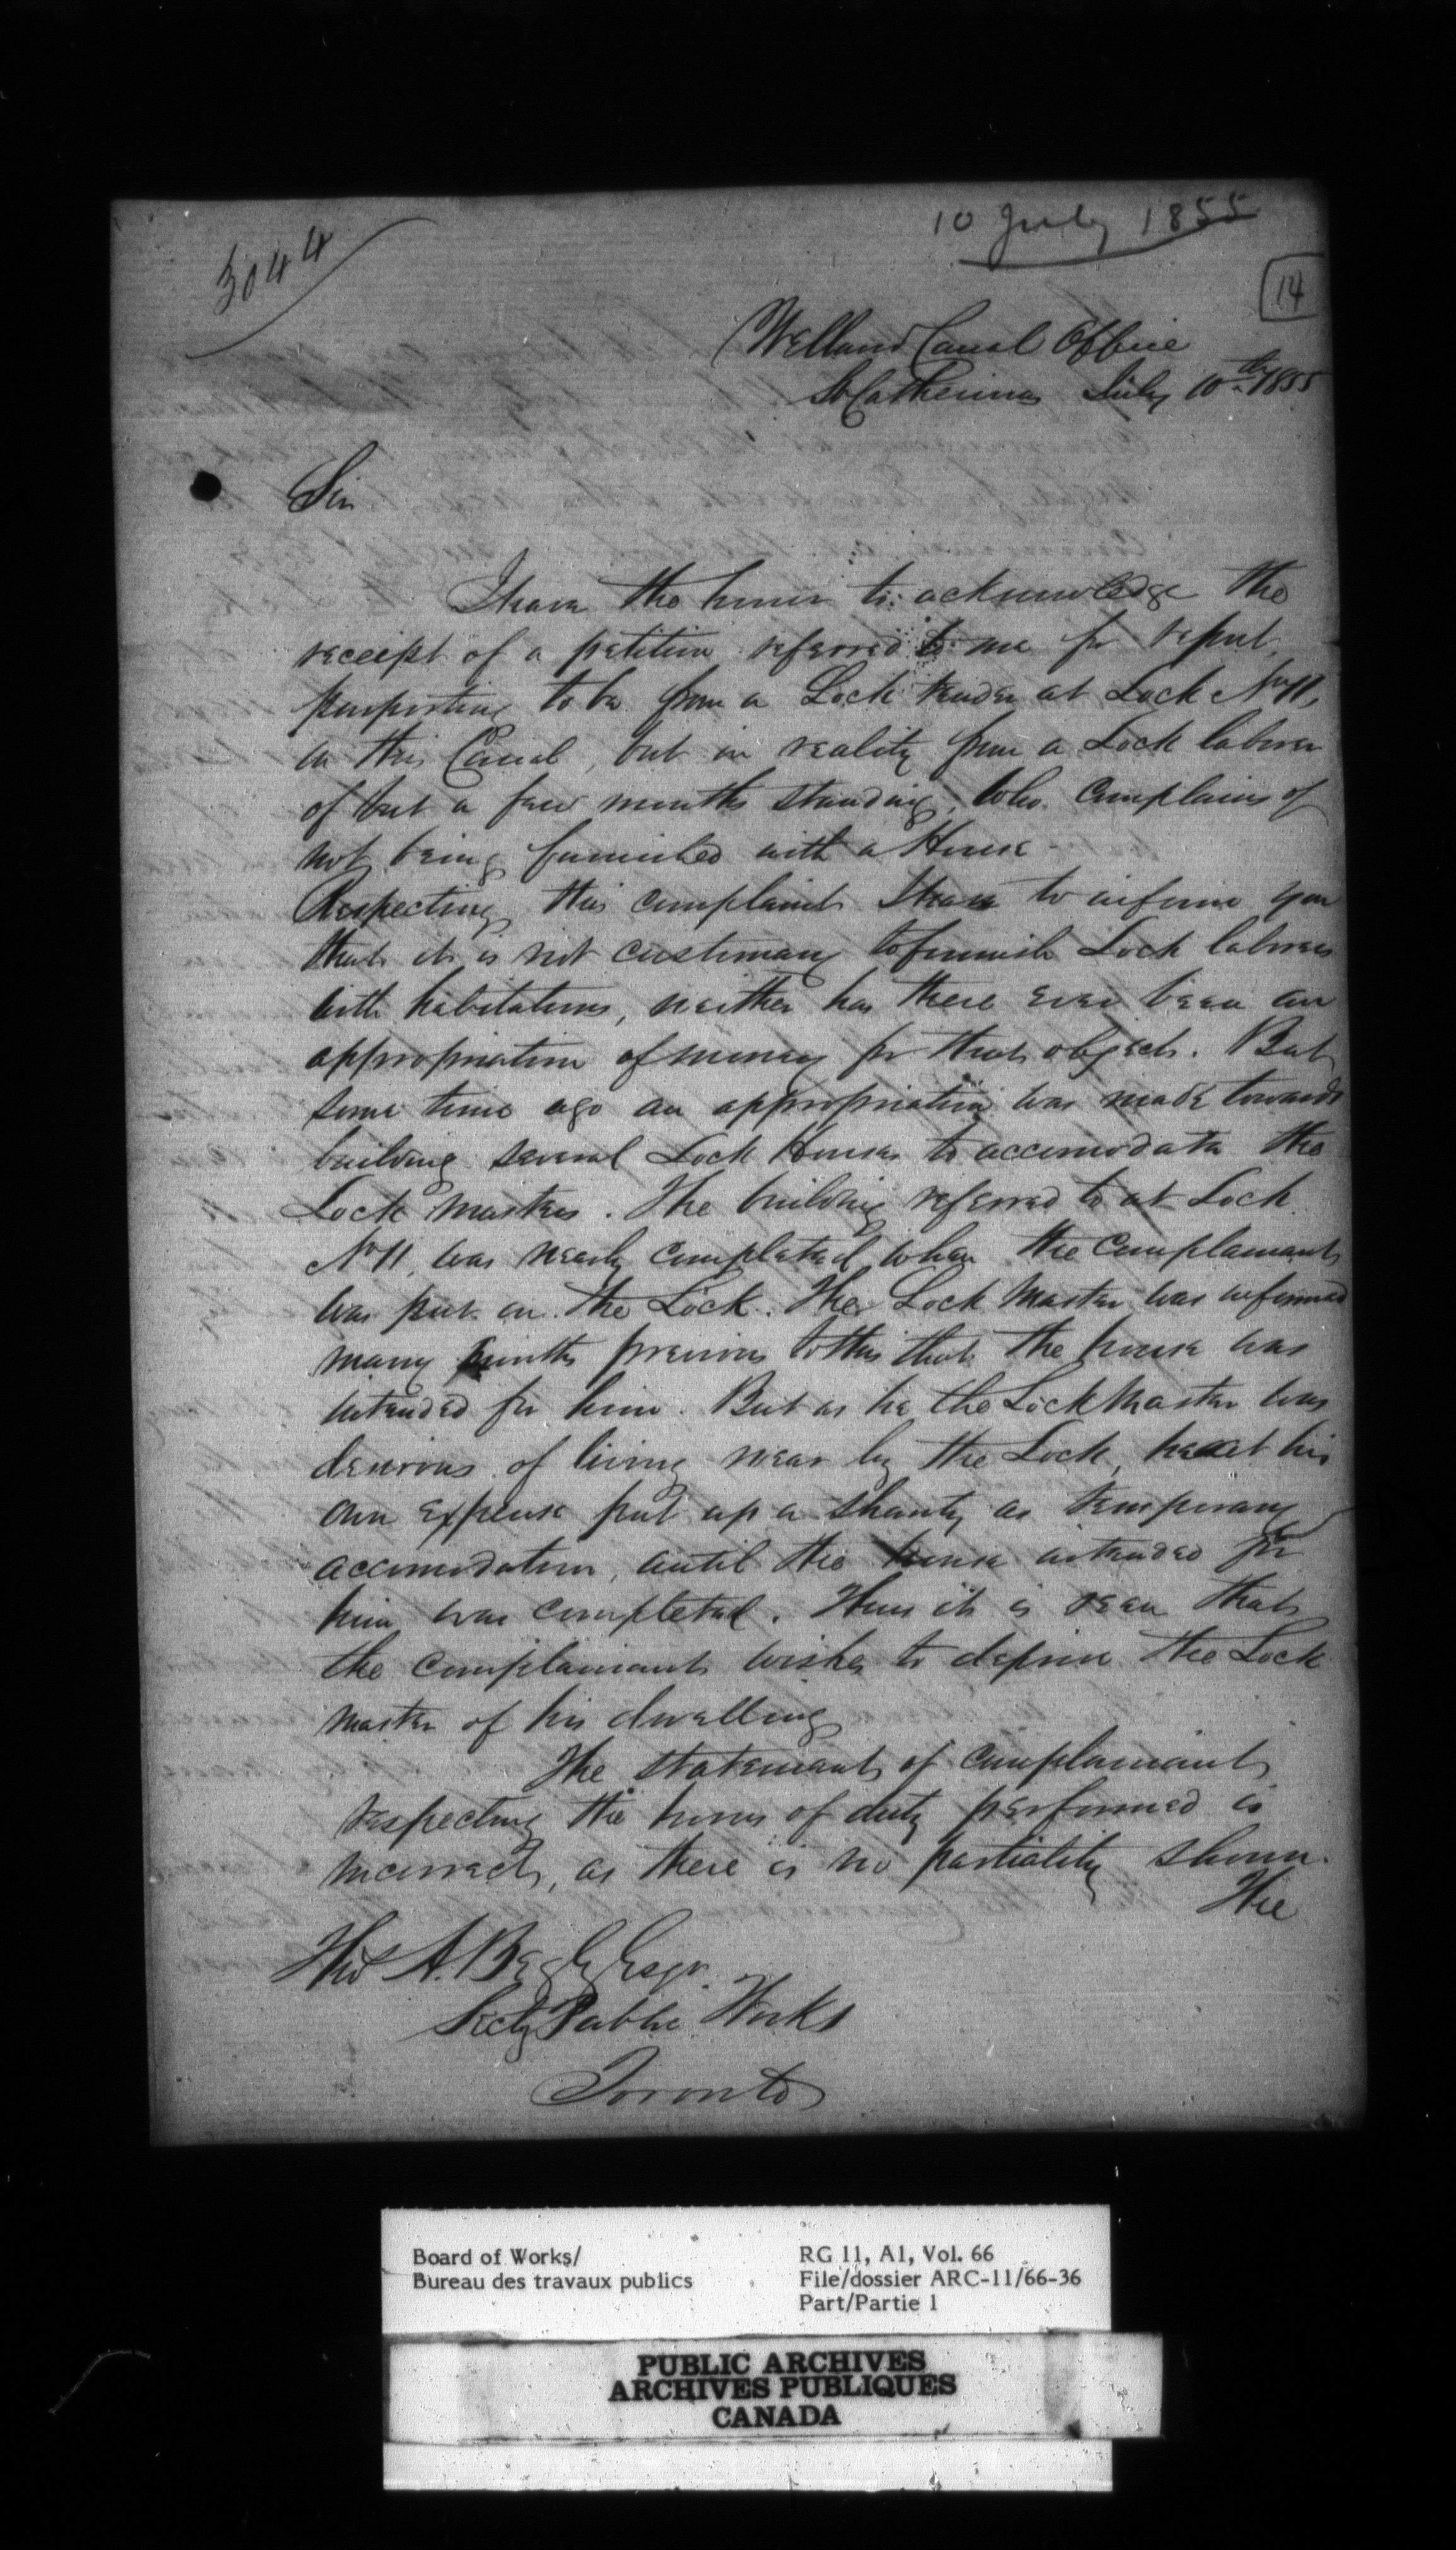 10 July 1855
3044
14
Welland Canal Office
St Catherines July 10th 1855
Sir
I have the honor to acknowledge the
receipt of a petition referred to me for report,
purporting to be from a Lock tender at Lock No 11,
on this Canal, but in reality from a Lock laborer
of but a few months standing, who complains of
not being furnished with a House -
Respecting this complaint I have to inform you
that it is not customary to furnish Lock laborers
with habitations, neither has there ever been an
appropriation of money for that object. But
some time ago an appropriation was made towards
building several Lock Houses to accomodate the
Lock masters. The building referred to at Lock
No 11, was nearly completed when the complainant
was put on the Lock. The Lock Master was informed
many months previous to this that the house was
intended for him. But as he the Lock Master was
desirous of living near by the Lock, he at his
own expense put up a shanty as temporary
accomodation, until the house intended for
him was completed. Thus it is seen that
the complainant wishes to deprive the Lock
master of his dwelling
The statement of complainant
respecting the hours of duty performed is
incorrect, as there is no partiality shown.
The
Thos A. Begly Esqr.
Secty Public Works
Toronto
Board of Works/
Bureau des travaux publics
RG 11, A1, Vol. 66
File/dossier ARC-11/66-36
Part/Partie 1
PUBLIC ARCHIVES
ARCHIVES PUBLIQUES
CANADA